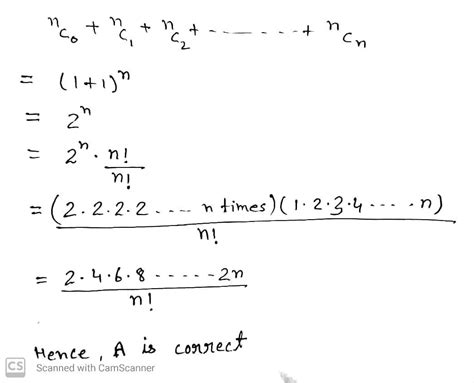 ⁿC₀ + ⁿC₁ + ⁿC₂ + - - - - - - - + ⁿCₙ
= (1+1)ⁿ
= 2ⁿ
= 2ⁿ · n! / n!
= (2·2·2·2 - - - - n times)(1·2·3·4 - - - - · n) / n!
= 2·4·6·8 - - - - - 2n / n!
Hence, A is correct
CS Scanned with CamScanner